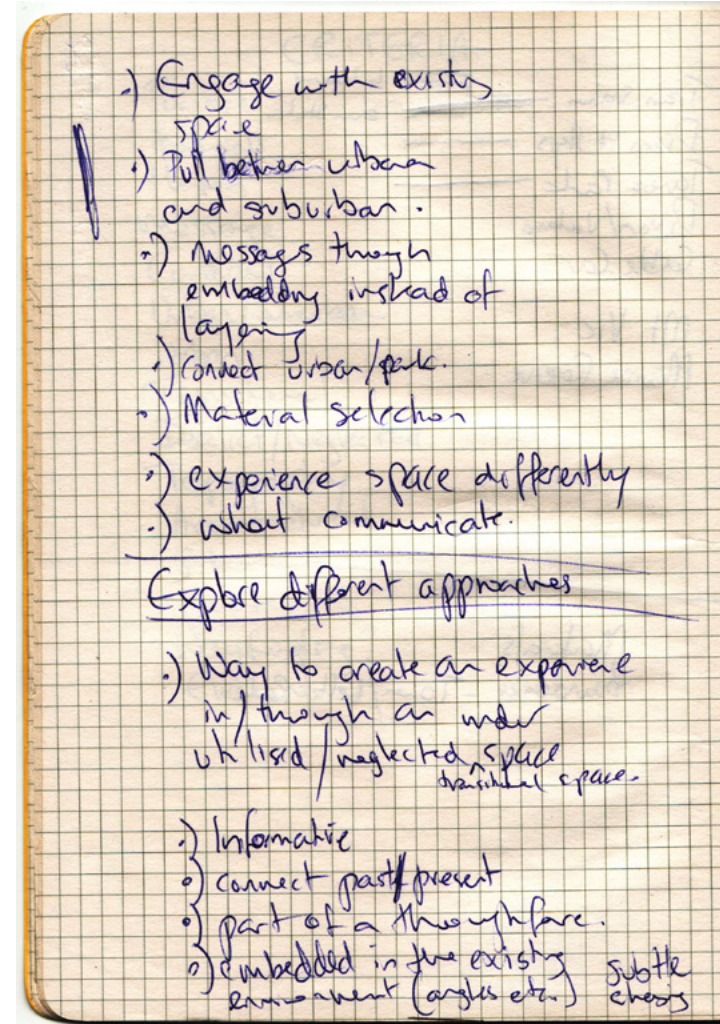 ·) Engage with existing
space
·) Pull between urban
and suburban.
·) Messages through
embedding instead of
layering
·) Connect urban/park.
·) Material selection
·) experience space differently
·) whait communicate.
Explore different approaches
·) Way to create an experience
in/through an under
utilised/neglected ^ space
transitional space.
·) Informative
·) connect past/present
·) part of a thoroughfare.
·) embedded in the existing
environment (angles etc.) subtle